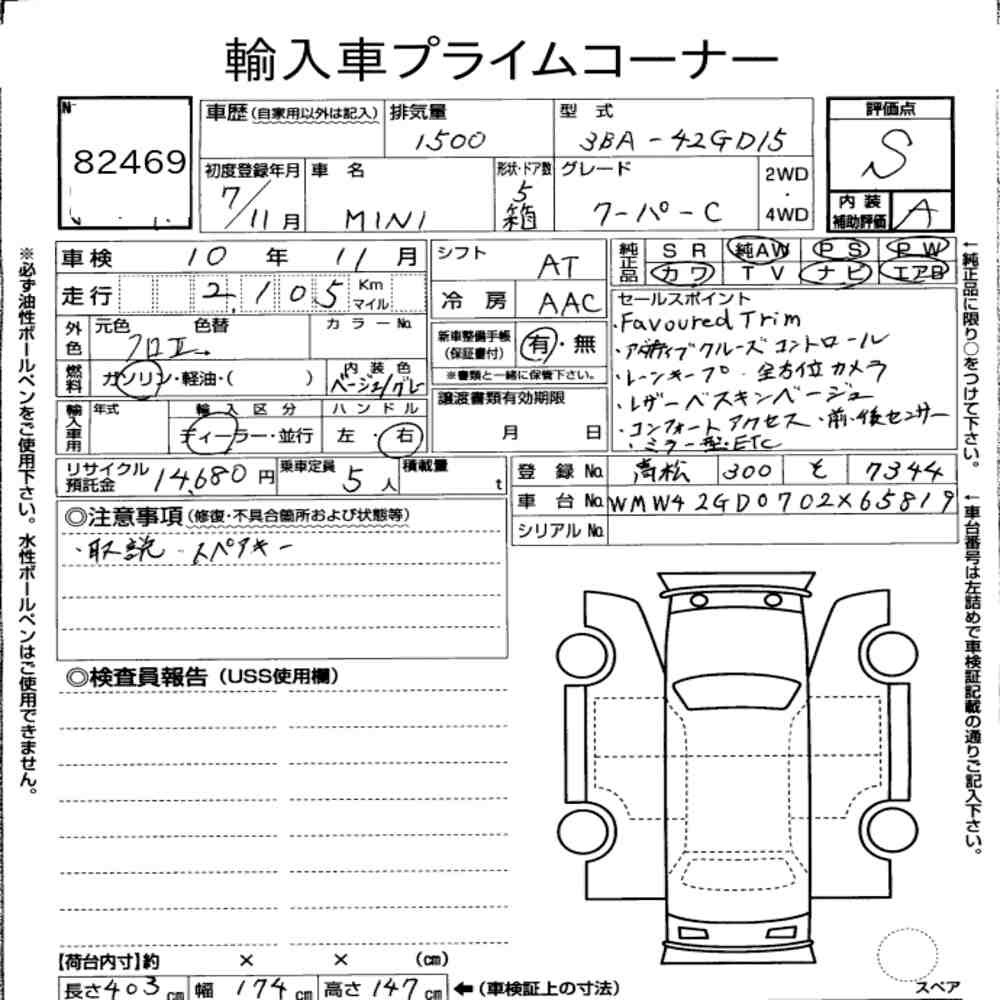 輸入車プライムコーナー
No
82469
車歴(自家用以外は記入)
排気量
1500
型 式
3BA-42GD15
評価点
S
初度登録年月
7/11月
車 名
MINI
形状・ドア数
5
箱
グレード
クーパーC
2WD
・
4WD
内装
補助評価
A
車検 10年 11月
走行 2,105 Km
マイル
シフト
AT
冷 房
AAC
純正品
SR 純AW PS PW
カワ TV ナビ エアB
外色
元色 色替
クロⅡ
カラーNo.
燃料
ガソリン・軽油・( )
内装色
ベージュ/グレー
新車整備手帳
(保証書付)
有・無
※書類と一緒に保管下さい。
譲渡書類有効期限
月 日
セールスポイント
・Favoured Trim
・アダプティブクルーズコントロール
・レーンキープ・全方位カメラ
・レザーベスキンベージュ
・コンフォートアクセス・前・後センサー
・ミラー型・ETC
輸入車用
年式
輸入区分
ディーラー・並行
ハンドル
左・右
リサイクル
預託金
14,680円
乗車定員
5人
積載量
t
登録No. 高松 300 そ 7344
車台No. WMW42GD0702X65819
シリアルNo.
◎注意事項(修復・不具合箇所および状態等)
・取説・スペアキー
◎検査員報告(USS使用欄)
【荷台内寸】約 × × (cm)
長さ403cm 幅174cm 高さ147cm ←(車検証上の寸法)
スペア
※必ず油性ボールペンをご使用下さい。水性ボールペンはご使用できません。
←純正品に限り○をつけて下さい。
←車台番号は左詰めで車検証記載の通りご記入下さい。